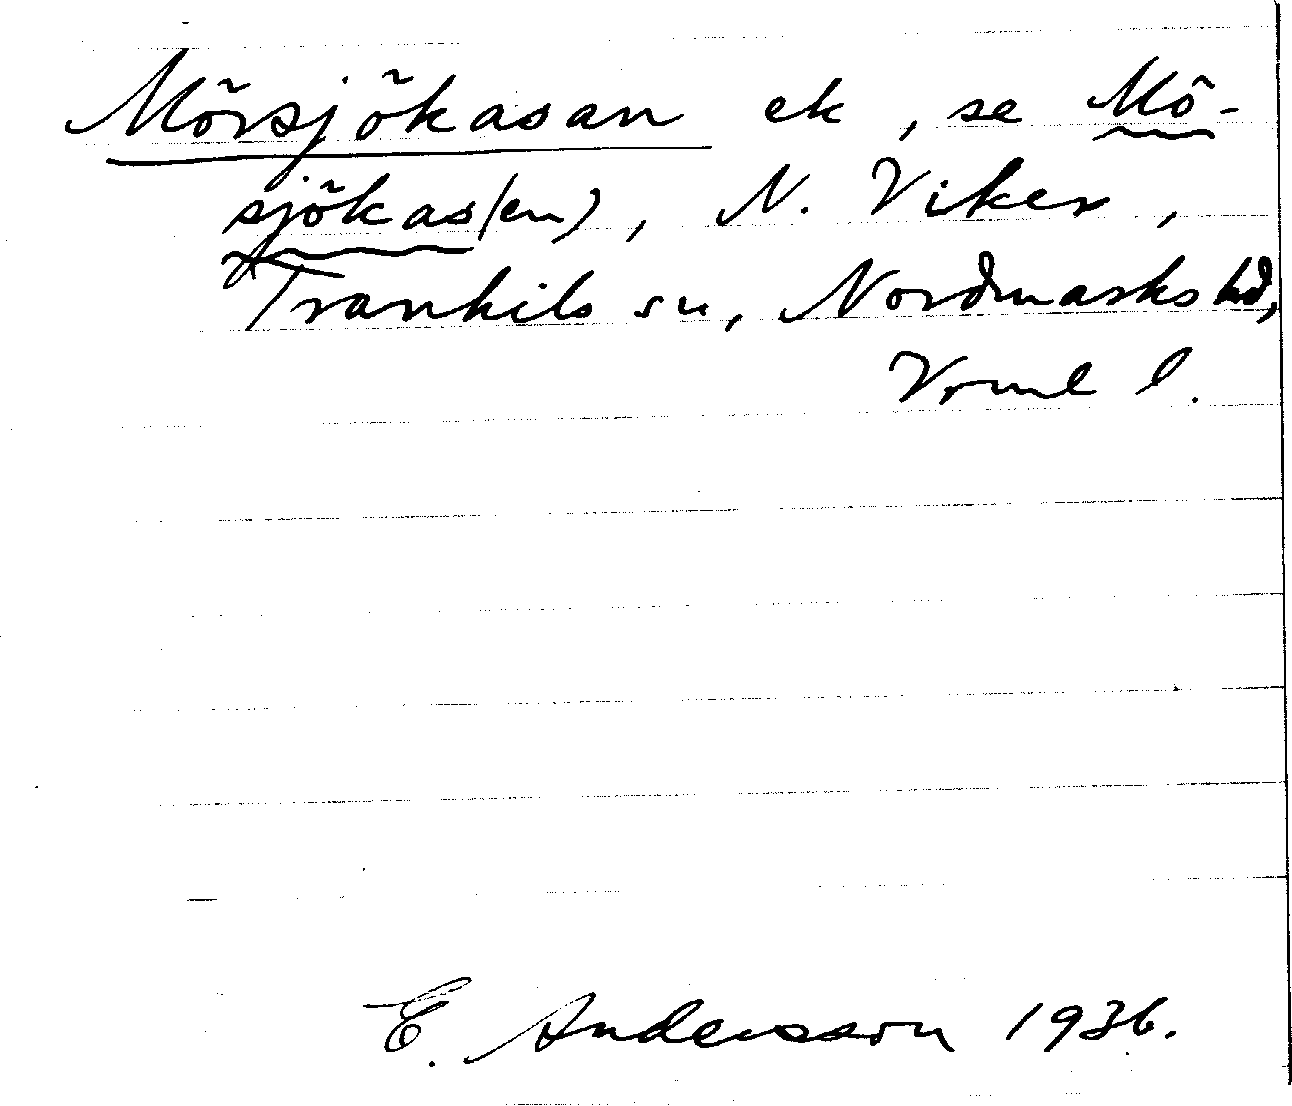 Mörsjökasan ek, se Mö-
sjökas(en), N. Viker,
Trankils sn, Nordmarks hd,
Vrml l.
E. Andersson 1936.